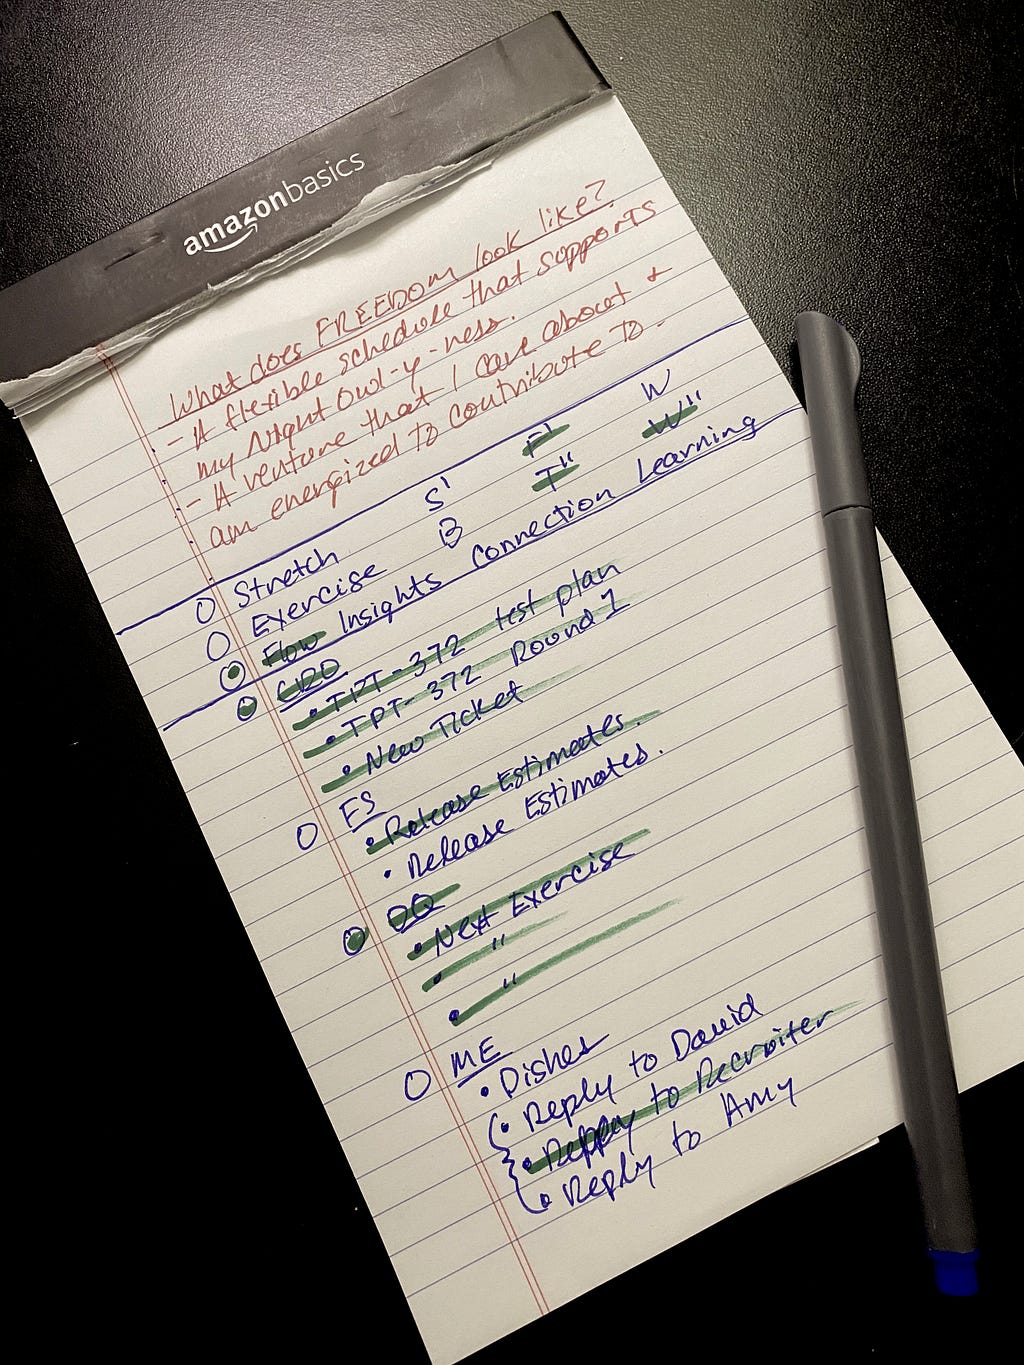 amazonbasics
What does FREEDOM look like?
- A flexible schedule that supports
my night owl-y-ness.
- A venture that I care about &
am energized to contribute to.
Stretch S' F' W
Exercise B T" W"
Flow Insights Connection Learning
• TPT-372 test plan
• TPT-372 Round 1
• New Ticket
FS
• Release Estimates.
• Release Estimates.
DQ
• Next Exercise
• "
• "
ME
• Dishes
• Reply to David
• Reply to Recruiter
• Reply to Amy